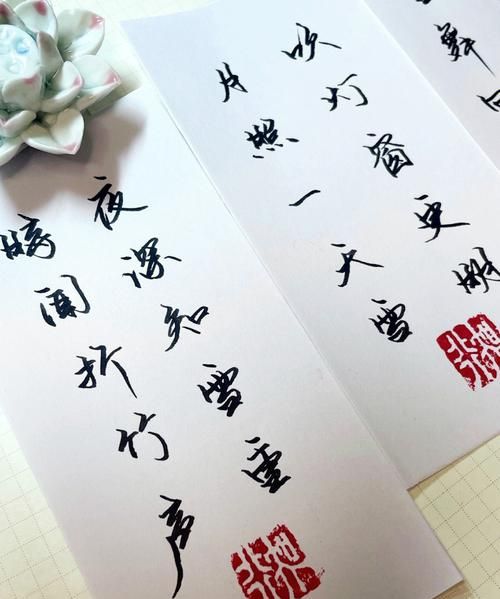 吹灯窗更明
月照一天雪
夜深知雪重
時闻折竹声